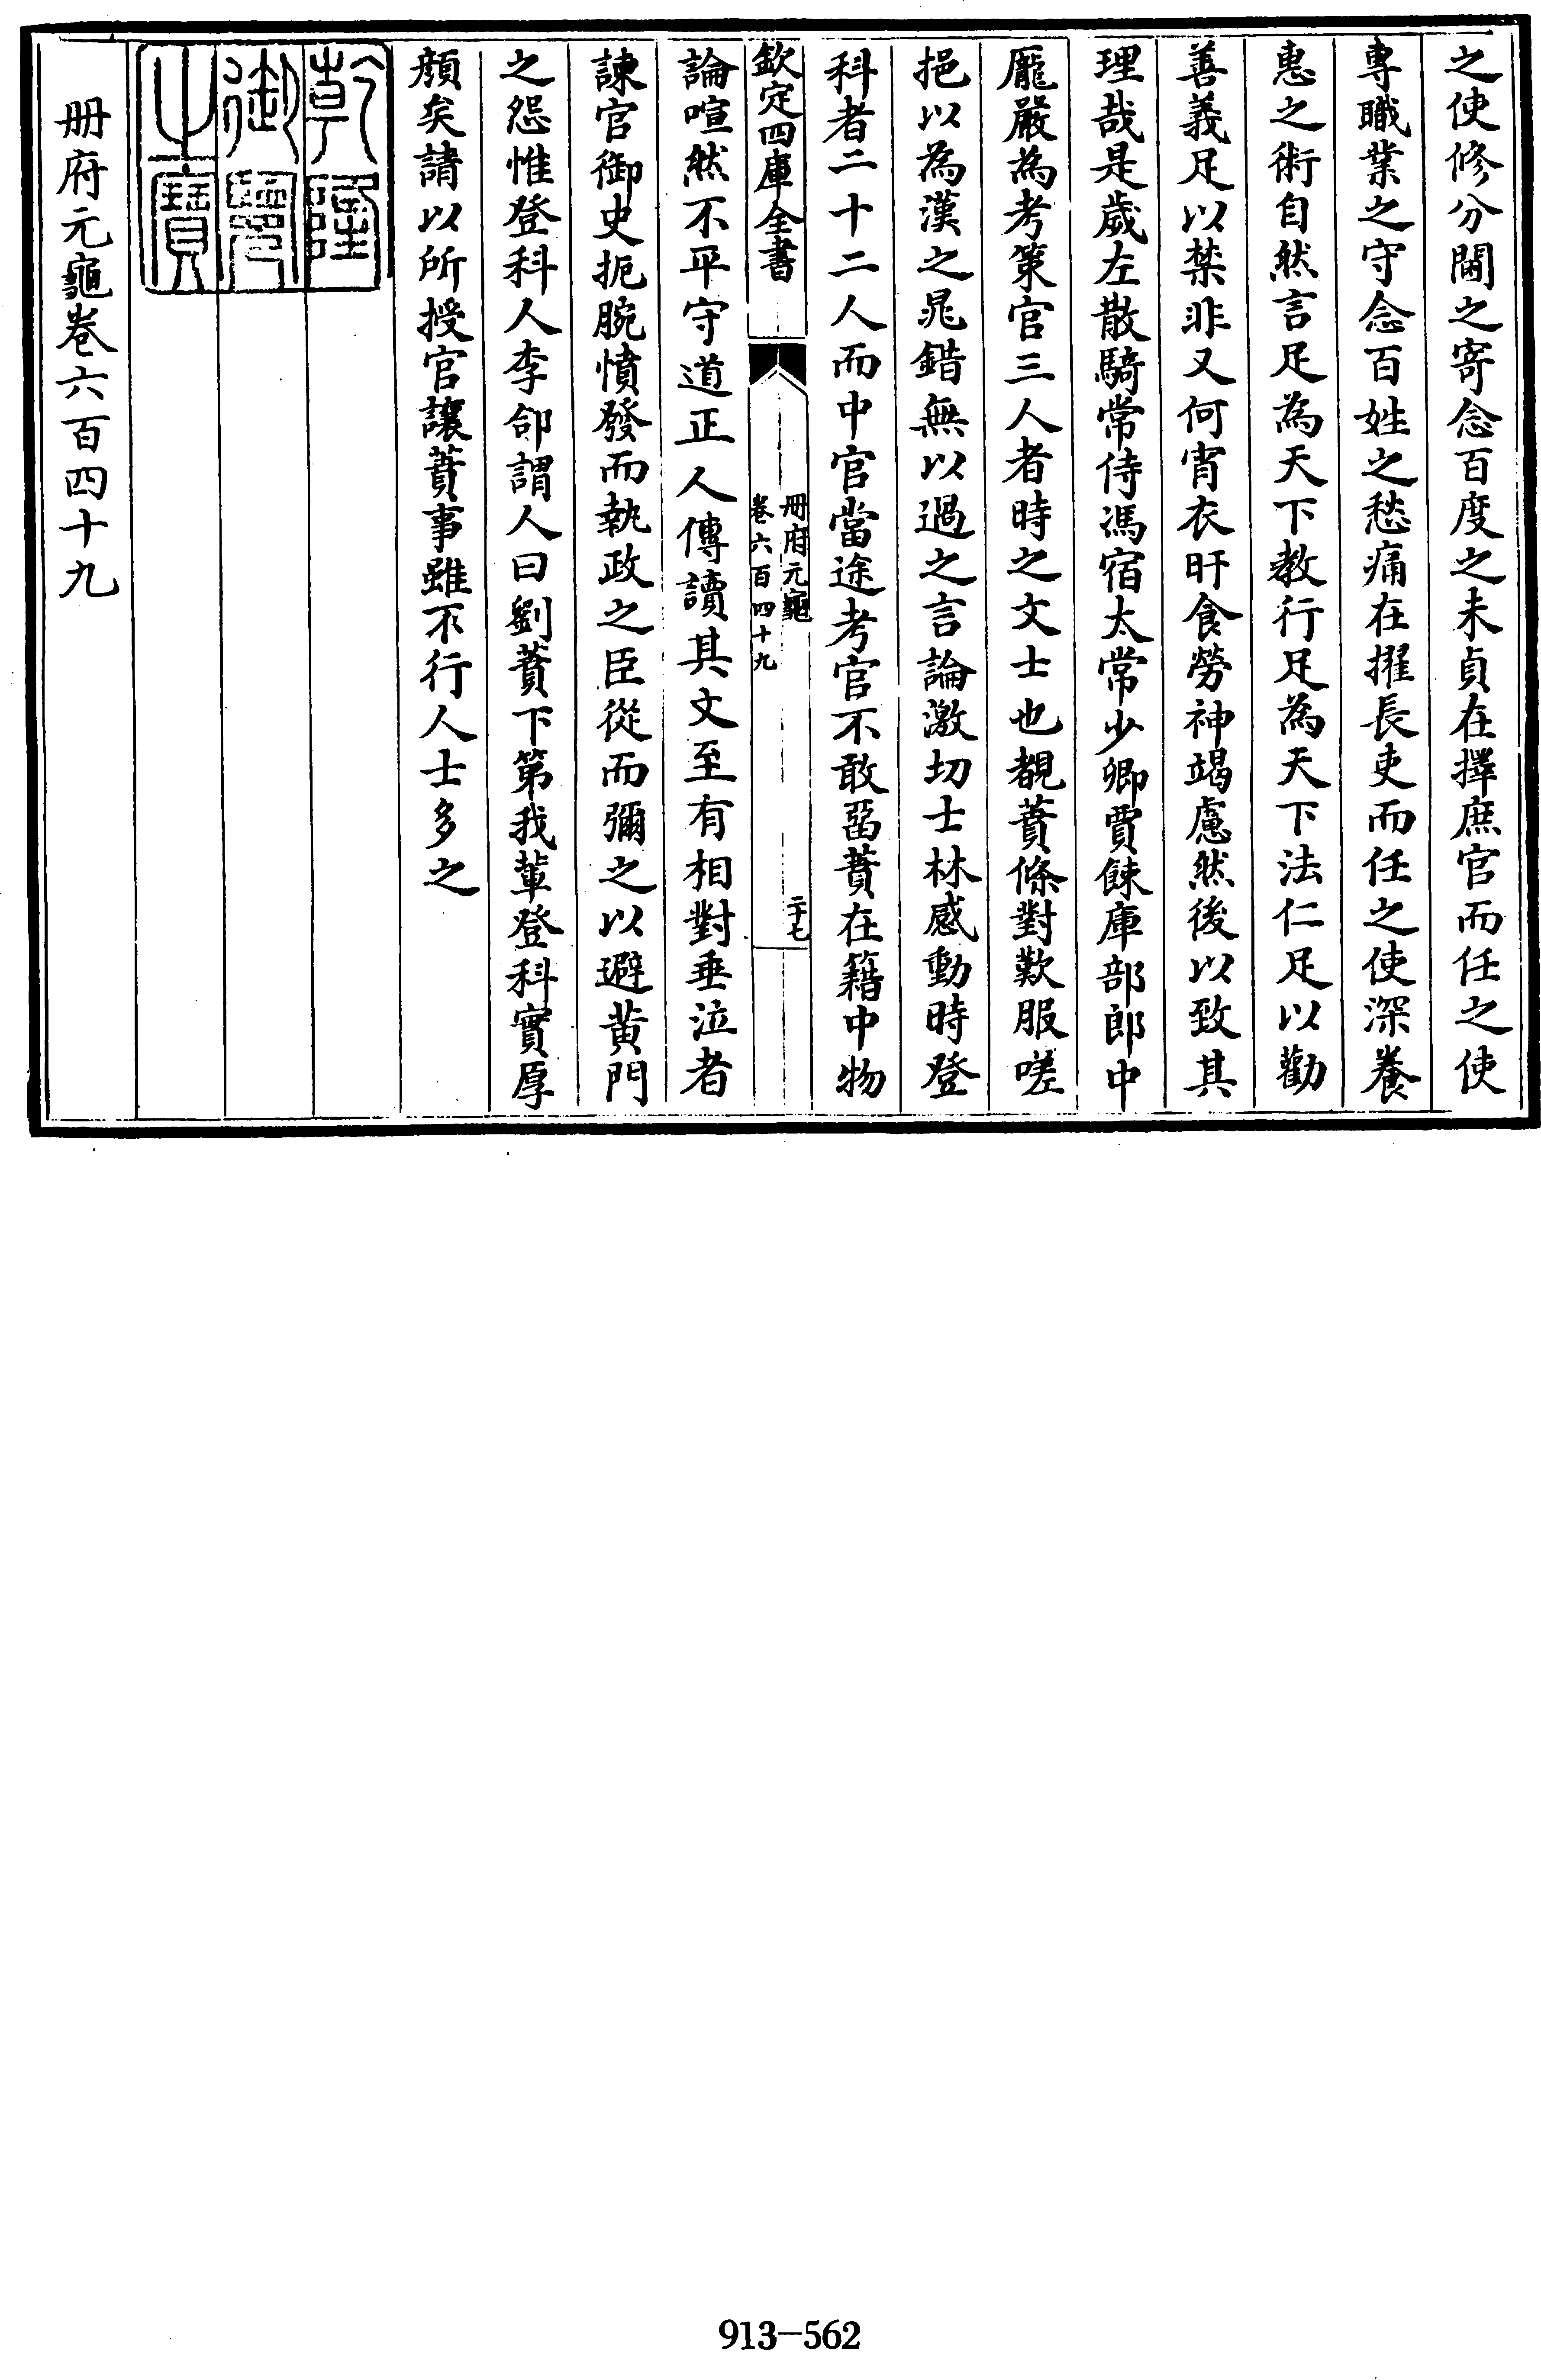 之使修分閫之寄念百度之未貞在擇庶官而任之使
專職業之守念百姓之愁痛在擢長吏而任之使深養
惠之術自然言足為天下教行足為天下法仁足以勸
善義足以禁非又何宵衣旰食勞神竭慮然後以致其
理哉是歲左散騎常侍馮宿太常少卿賈餗庫部郎中
龐嚴為考策官三人者時之文士也覩蕡條對歎服嗟
挹以為漢之晁錯無以過之言論激切士林感動時登
科者二十二人而中官當途考官不敢畱蕡在籍中物
欽定四庫全書
冊府元龜
卷六百四十九
二十七
論喧然不平守道正人傳讀其文至有相對垂泣者
諫官御史扼腕憤發而執政之臣從而彌之以避黃門
之怨惟登科人李郃謂人曰劉蕡下第我輩登科實厚
顏矣請以所授官讓蕡事雖不行人士多之
乾隆
御覽
之寶
冊府元龜卷六百四十九
913-562